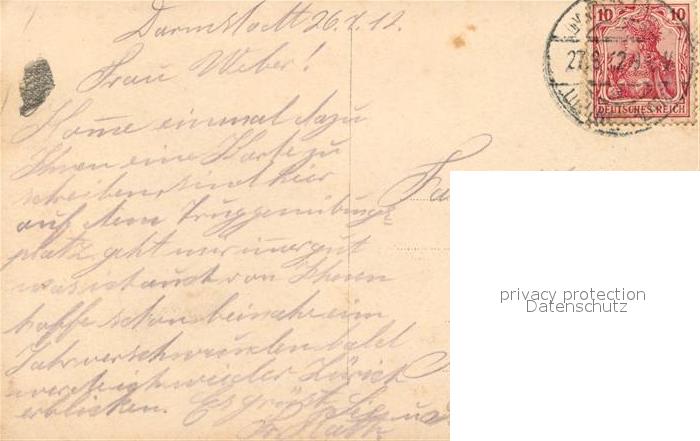 Darmstadt 26.7.12.
Frau Weber!
Kom̅e einmal dazu
Ihnen eine Karte zu
schreiben sind hier
auf dem Truppenübungs-
platz geht mir im̅er gut
was ich auch von Ihnen
hoffe schon beinahe ein
Jahr verschwunden bald
werde ich wieder Zürich
erblicken. Es grüßt Sie
10 10
DEUTSCHES REICH
privacy protection
Datenschutz